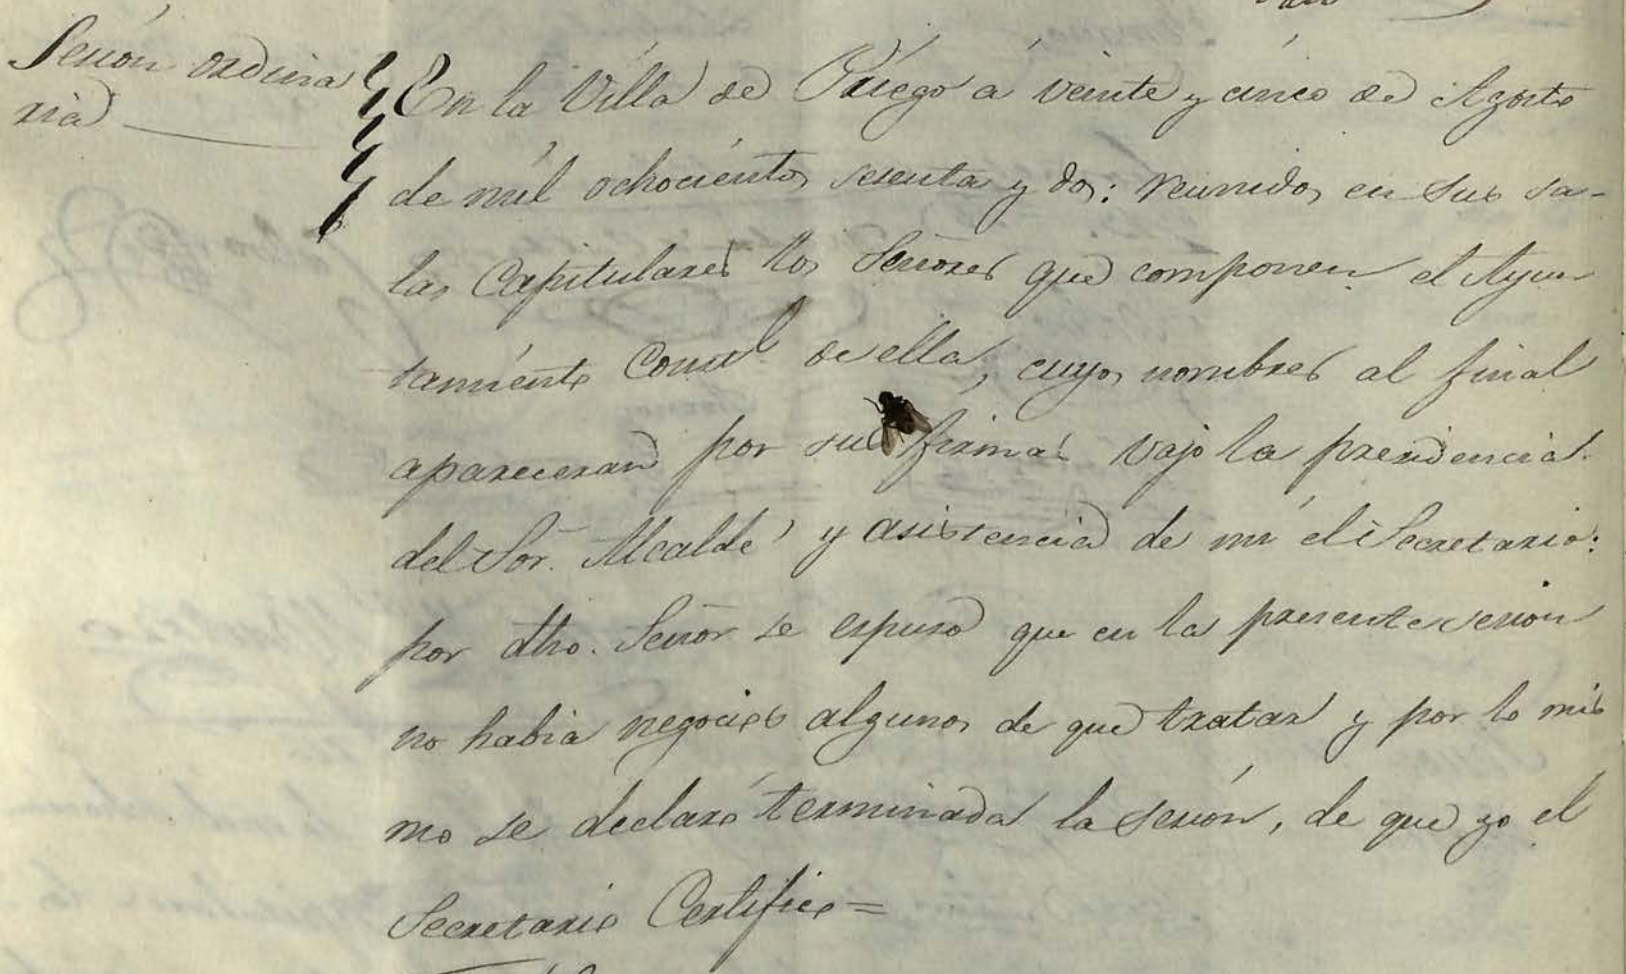 Sesión ordina
ria
En la Villa de Priego á veinte y cinco de Agosto
de mil ochocientos sesenta y dos: reunidos en sus sa-
las Capitulares los Señores que componen el Ayun
tamiento Constl. de ella, cuyos nombres al final
apareceran por sus firmas vajo la presidencia
del Sor. Alcalde y asistencia de mi el Secretario:
por dho. Señor se espuso que en la presente sesion
no habia negocios algunos de que tratar y por lo mis
mo se declaró terminada la sesión, de que yo el
Secretario Certifico=